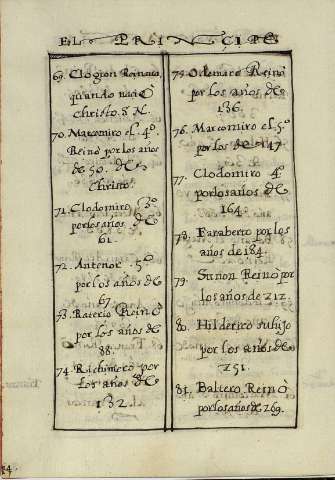 EL PRINCIPE
69. Clogion Reinaua,
quando nació
christo. S. N.
70. Marcomiro el. 4º.
Reinó por los años
de 50. de
christo.
71. Clodomiro. 3º.
por los años de
61.
72. Antenor. 5º.
por los años de
67.
73. Raterio Reinó
por los años de
88.
74. Richimero por
los años de
132.
75. Odemaro Reinó
por los años de
136.
76. Marcomiro el. 5º.
por los de 147.
77. Clodomiro 4º
por los años de
164.
78. Faraberto por los
años de 184.
79. Sunon Reinó por
los años de 212.
80. Hilderico su hijo
por los años de
251.
81. Baltero Reinó
por los años de. 269.